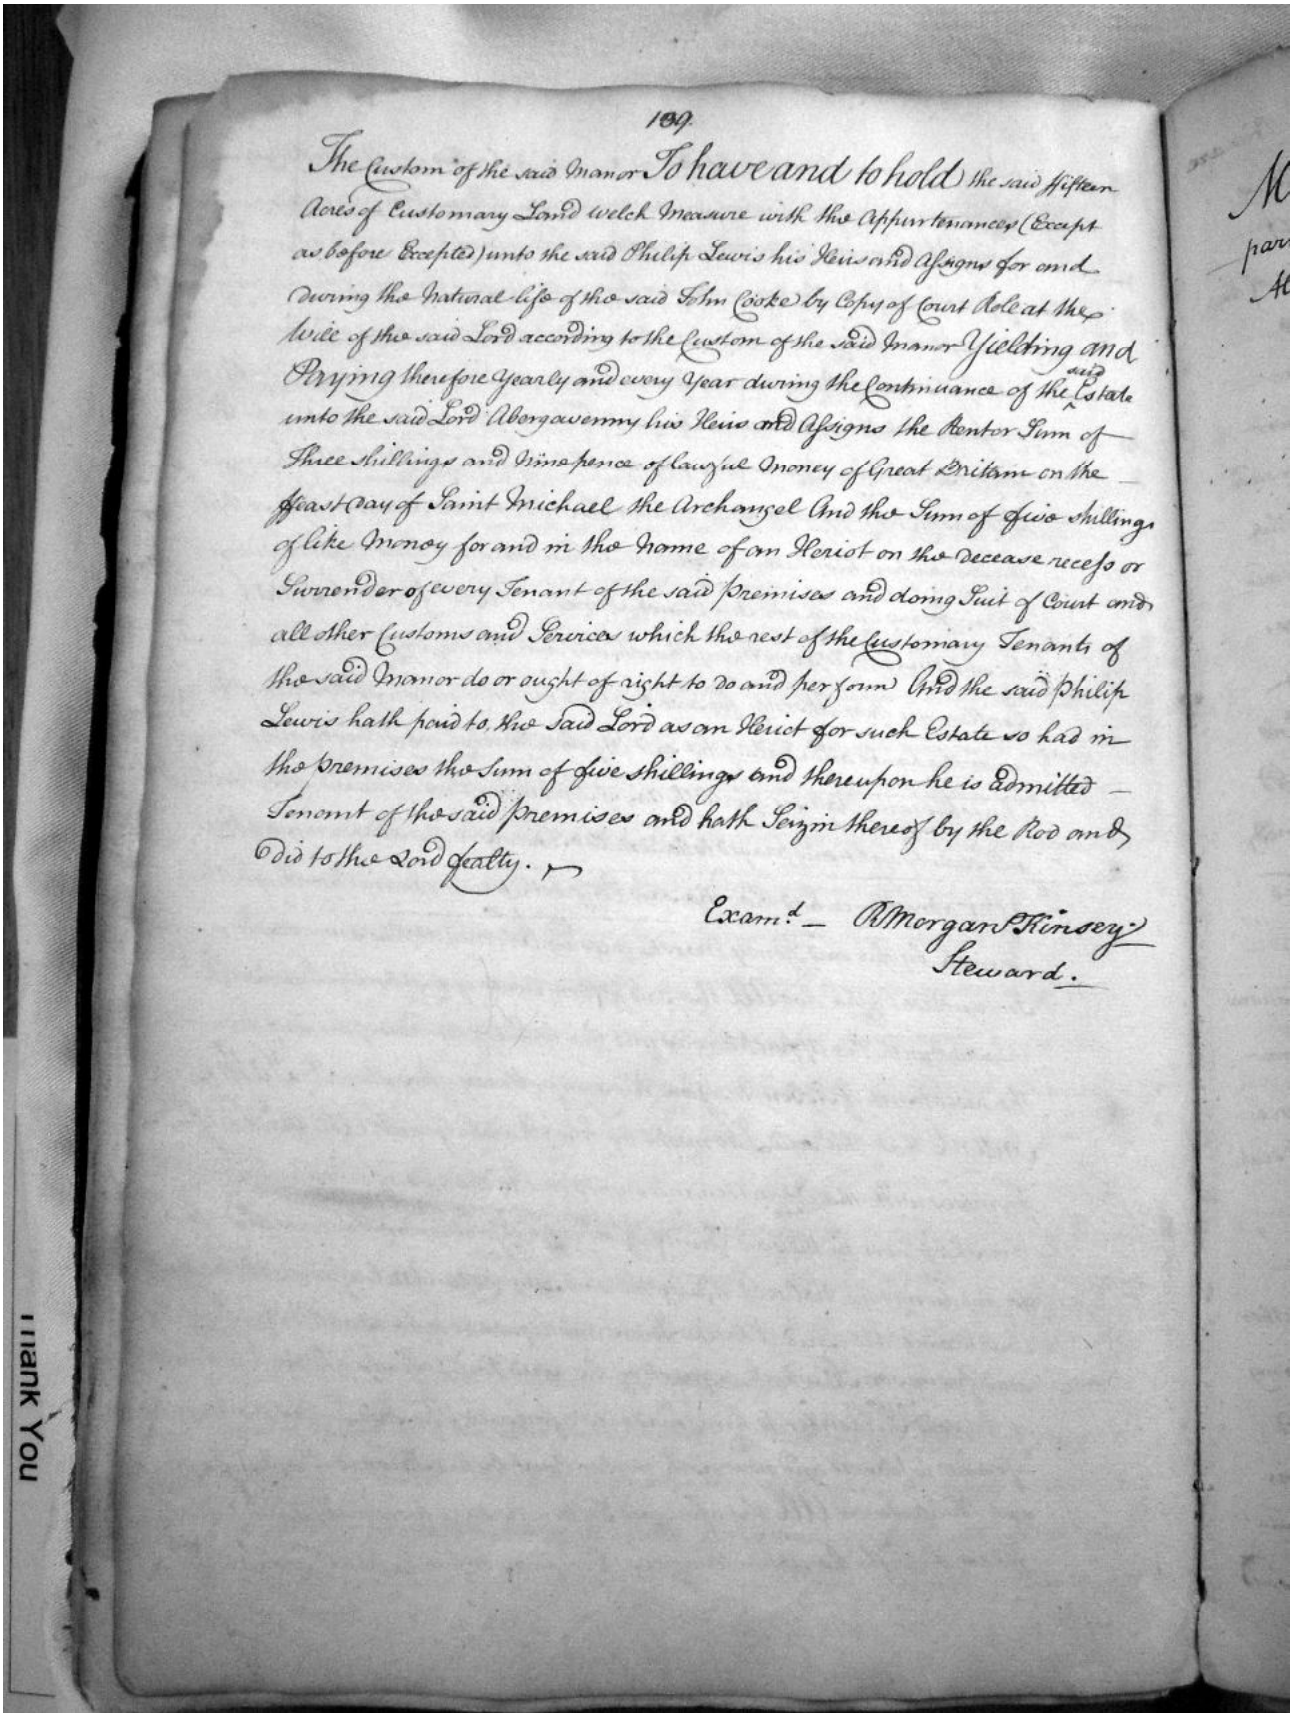 139.
The Custom of the said Manor To have and to hold the said ffifteen
Acres of Customary Land welch Measure with the Appurtenances (Except
as before Excepted) unto the said Philip Lewis his Heirs and Assigns for and
During the Natural life of the said John Cooke by Copy of Court Role at the
Will of the said Lord according to the Custom of the said Manor Yielding and
Paying therefore Yearly and every Year during the Continuance of the said Estate
unto the said Lord Abergavenny his Heirs and Assigns the Rent or Sum of
Three shillings and Nine pence of lawful Money of Great Britain on the
ffeast Day of Saint Michael the Archangel And the Sum of five shillings
of like Money for and in the Name of an Heriot on the Decease recess or
Surrender of every Tenant of the said Premises and doing Suit of Court and
all other Customs and Services which the rest of the Customary Tenants of
the said Manor do or ought of right to do and perform And the said Philip
Lewis hath paid to the said Lord as an Heriot for such Estate so had in
the Premises the Sum of five shillings and thereupon he is admitted
Tenant of the said Premises and hath Seizin thereof by the Rod and
Did to the Lord fealty.
Exam.d R Morgan Kinsey
Steward.
Thank You
M
par